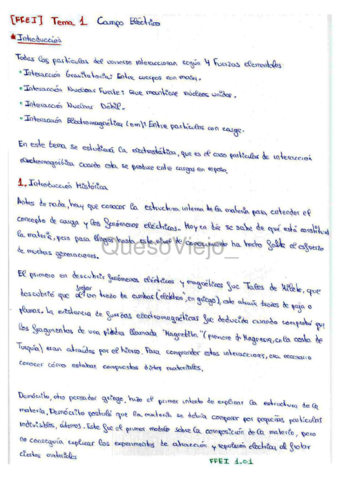 [FFEI] Tema 1 Campo Eléctrico
Introducción
Todas las partículas del universo interaccionan según 4 Fuerzas elementales:
· Interacción Gravitatoria: Entre cuerpos con masa.
· Interacción Nuclear Fuerte: que mantiene núcleos unidos.
· Interacción Nuclear Débil.
· Interacción Electromagnética (em): Entre partículas con carga.
En este tema se estudiará la electrostática, que es el caso particular de interacción
electromagnética cuando esta se produce entre cargas en reposo.
1. Introducción Histórica
Antes de nada, hay que conocer la estructura interna de la materia para entender el
concepto de carga y los fenómenos eléctricos. Hoy en día se sabe de qué está constituida
la materia, pero para llegar hasta este nivel de conocimiento ha hecho falta el esfuerzo
de muchas generaciones.
QuesoViejo_
El primero en descubrir fenómenos eléctricos y magnéticos fue Tales de Mileto, que
descubrió que al frotar un trozo de ámbar ("elektron", en griego), este atraía trozos de paja o
plumas. La existencia de fuerzas electromagnéticas fue deducida cuando comprobó que
los fragmentos de una piedra llamada "Magnetita" (proviene de Magnesia, en la costa de
Turquía) eran atraídos por el hierro. Para comprender estas interacciones, era necesario
conocer cómo estaban compuestos estos materiales.
Demócrito, otro pensador griego, hizo el primer intento de explicar la estructura de la
materia. Demócrito postuló que la materia se debía componer por pequeñas partículas
indivisibles, átomos. Este fue el primer modelo sobre la composición de la materia, pero
no conseguía explicar los experimentos de atracción y repulsión eléctrica al frotar
ciertos materiales
FFEI 1.01